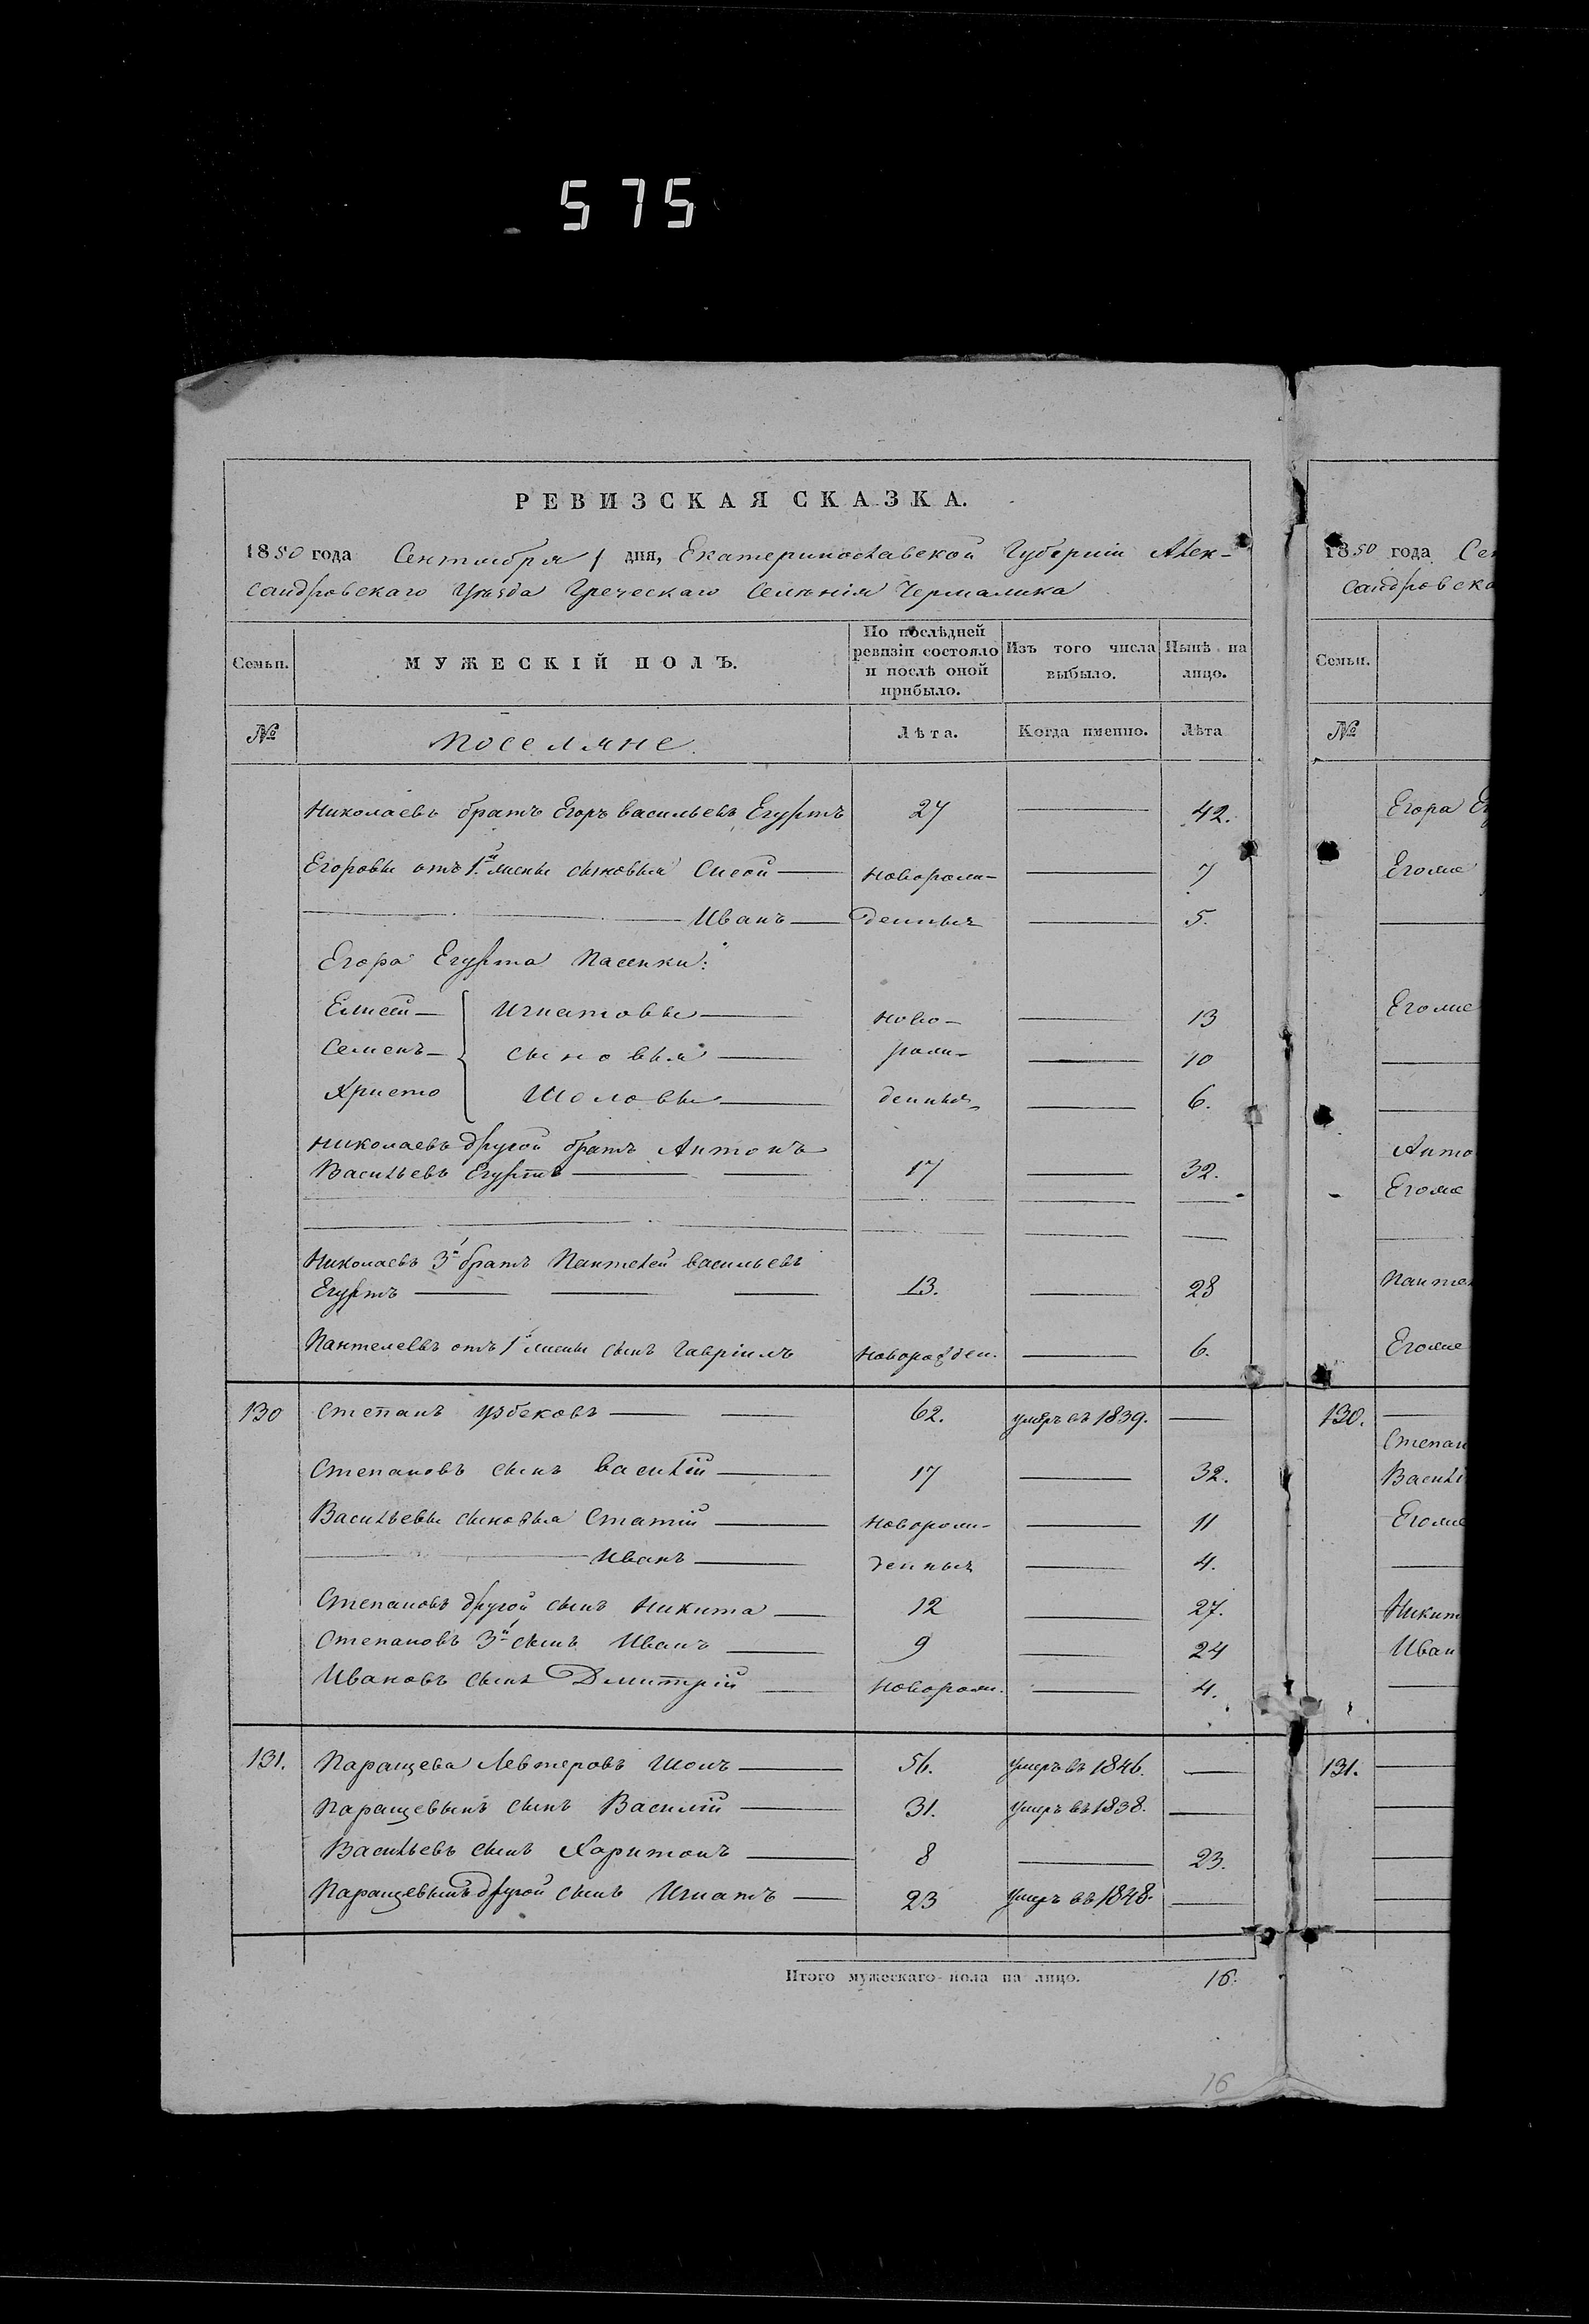 575
РЕВИЗСКАЯ СКАЗКА.
1850 года Сентября 1 дня, Екатеринославской Губерніи Алек-
сандровскаго Уѣзда Греческаго Селенія Чермалика
Семьи. МУЖЕСКІЙ ПОЛЪ. По послѣдней ревизіи состояло и послѣ оной прибыло. Изъ того числа выбыло. Нынѣ на лицо.
№ Поселяне Лѣта. Когда именно. Лѣта
Николаевъ братъ Егоръ васильевъ Егуртъ 27 — 42.
Егоровы отъ 1й жены сыновья — новорож- — 7
Иванъ — денныя — 5.
Егора Егурта Пасынки:
Елисей — Игнатовы — ново- — 13
Семенъ — сыновья — рож- — 10
Христо Шоловы — денныя — 6.
Николаевъ другой братъ Антонъ
Васильевъ Егуртъ — 17 — 32.
Николаевъ 3й братъ Пантелей васильевъ
Егуртъ — 13. — 28
Пантелеевъ отъ 1й жены сынъ Гавріилъ новорожден. — 6.
130 Степанъ Узбековъ — 62. умеръ въ 1839. —
Степановъ сынъ василій — 17 — 32.
Васильевы сыновья Статій — новорож- — 11
Иванъ — денныя — 4.
Степановъ другой сынъ Никита — 12 — 27.
Степановъ 3й сынъ Иванъ — 9 — 24
Ивановъ сынъ Дмитрій — новорож. — 4.
131. Паращева Левтеровъ Шолъ — 56. умеръ въ 1846. —
Паращевынъ сынъ Василій — 31. умеръ въ 1838. —
Васильевъ сынъ Харитонъ — 8 — 23.
Паращевынъ другой сынъ Игнатъ — 23 умеръ въ 1848. —
Итого мужескаго пола на лицо. 16.
16
1850 года Се
сандровска
Семьи.
№
Егора Ег
Егоже
Егоже
Анто
Егоже
Пантел
Егоже
130. —
Степан
Васил
Егоже
Никит
Иван
131. —